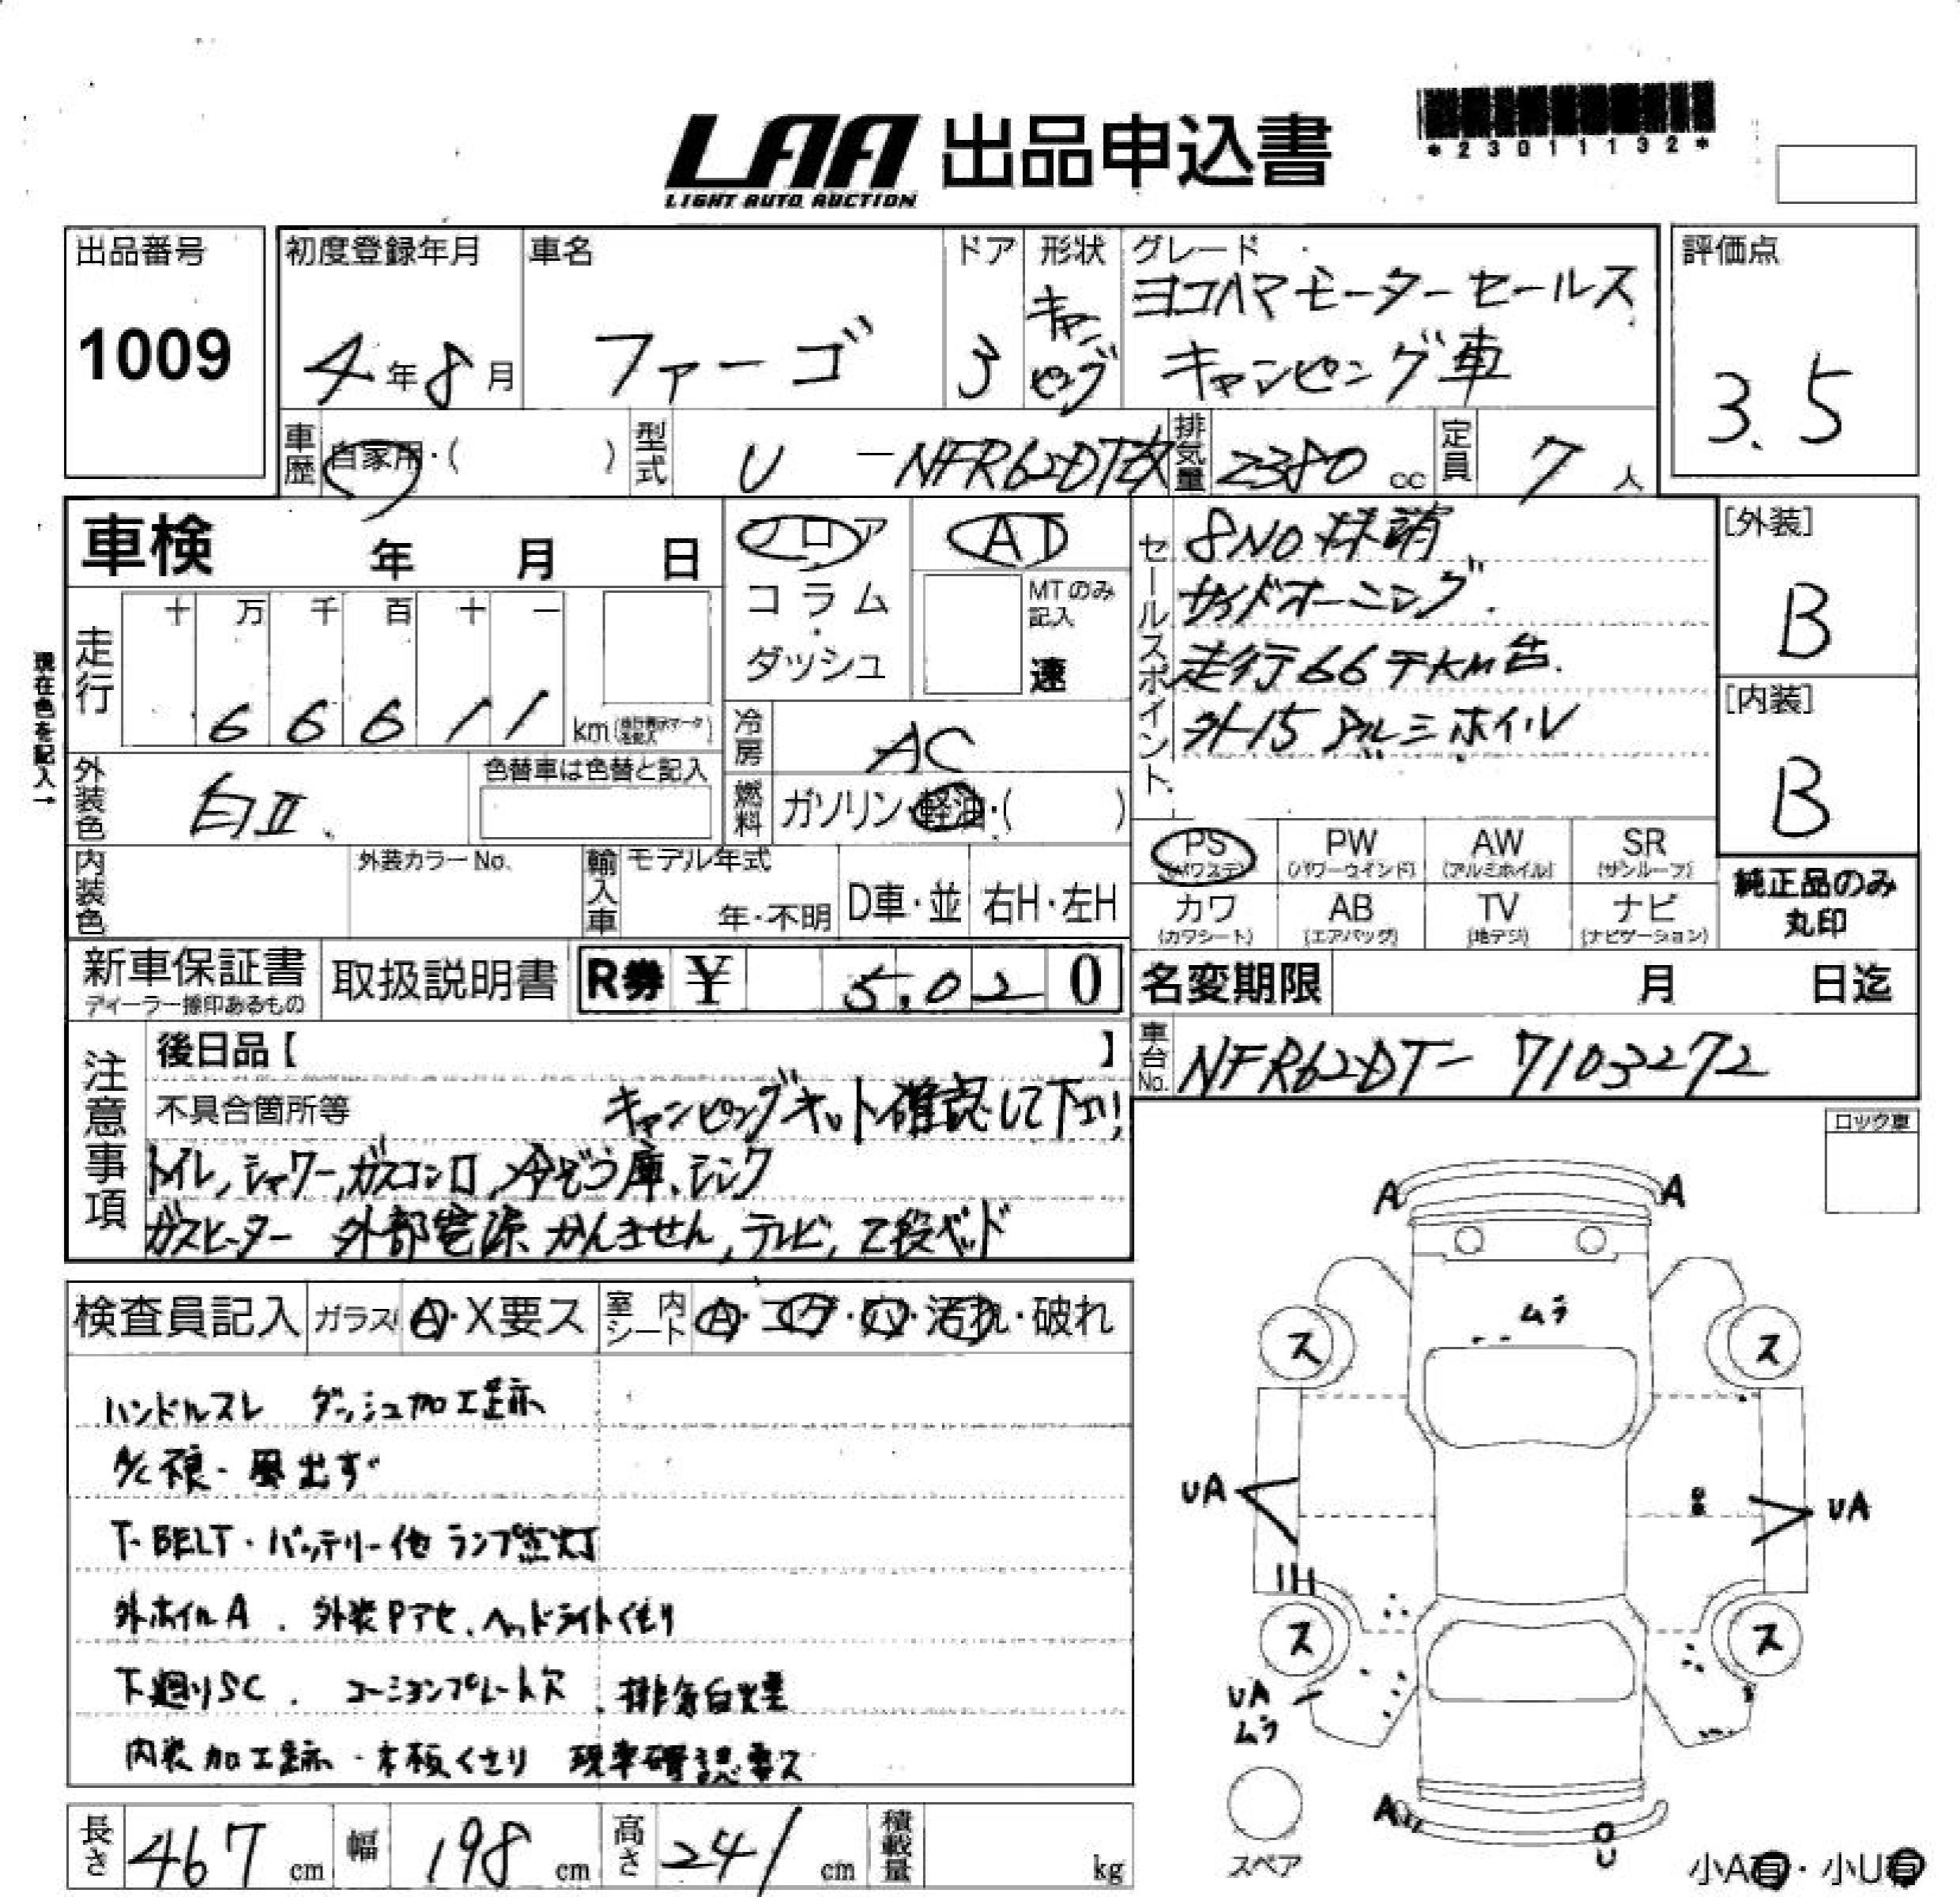 LAA 出品申込書
LIGHT AUTO AUCTION
*23011132*
出品番号
1009
初度登録年月
4年8月
車名
ファーゴ
ドア
3
形状
キャンピング
グレード
ヨコハマモーターセールス
キャンピング車
評価点
3.5
車歴
自家用・( )
型式
U-NFR62DT改
排気量
2380 cc
定員
7人
車検 年 月 日
フロア
コラム・
ダッシュ
AT
MTのみ記入
速
セールスポイント
8NO 抹消
サイドオーニング.
走行66千km台.
外15アルミホイル
[外装]
B
[内装]
B
現在色を記入→
走行
十 万 千 百 十 一
66611
km
冷房
AC
外装色
白II.
色替車は色替と記入
燃料
ガソリン・軽油・( )
PS
(パワステ)
PW
(パワーウインド)
AW
(アルミホイル)
SR
(サンルーフ)
カワ
(カワシート)
AB
(エアバッグ)
TV
(地デジ)
ナビ
(ナビゲーション)
純正品のみ
丸印
内装色
外装カラーNo.
輸入車
モデル年式
年・不明
D車・並
右H・左H
新車保証書
ディーラー捺印あるもの
取扱説明書
R券 ¥ 5.020
名変期限 月 日迄
車台No.
NFR62DT-7103272
注意事項
後日品【 】
不具合箇所等
キャンピングキット確認して下さい!
トイレ,シャワー,ガスコンロ,冷ぞう庫、シンク
ガスヒーター 外部電源 かんません,テレビ,2段ベッド
ロック車
検査員記入
ガラス
A・X要ス
室内シート
A・コゲ・穴・汚れ・破れ
ハンドルスレ ダッシュ加工跡
A/C不良・風出ず
T-BELT・バッテリー他ランプ点灯
外ホイルA.外装Pアセ.ヘッドライトくもり
下廻りSC.コーションプレート欠.排気白煙
内装加工跡・木板くさり 現車確認要ス
A
A
ムラ
ス
ス
UA
UA
ス
ス
UA
ムラ
A
U
スペア
小A有・小U有
長さ
467 cm
幅
198 cm
高さ
241 cm
積載量
kg